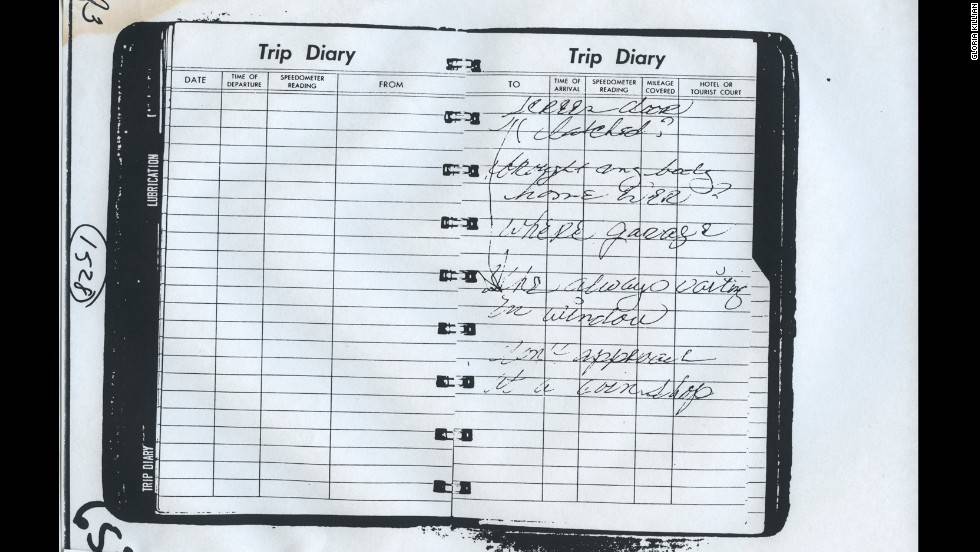 GLORIA KILLIAN
Trip Diary
DATE
TIME OF DEPARTURE
SPEEDOMETER READING
FROM
Trip Diary
TO
TIME OF ARRIVAL
SPEEDOMETER READING
MILEAGE COVERED
HOTEL OR TOURIST COURT
screen door
latched?
body
home
where garage
always waiting
In window
Don't approach
at a coin shop
LUBRICATION
TRIP DIARY
1528